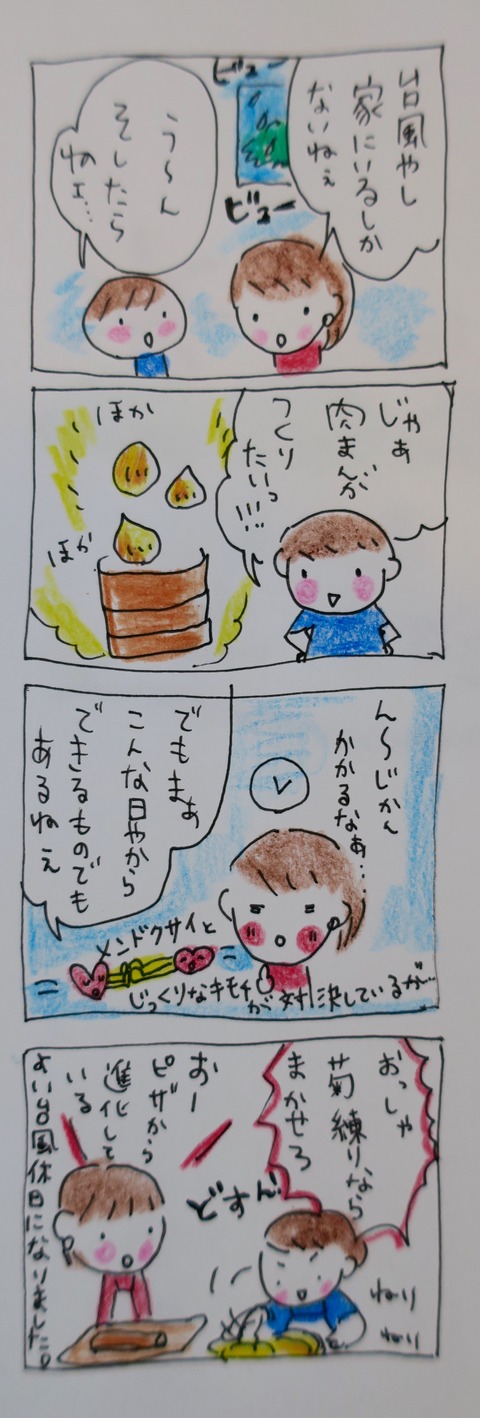 台風やし
家にいるしか
ないねぇ
ビュー
ビュー
うーん
そしたら
ねェ…
じゃあ
肉まんが
つくり
たいっ
!!!
ほか
ほか
ん〜じかん
かかるなぁ…
でもまぁ
こんな日やから
できるものでも
あるねぇ
メンドクサイと
じっくりなキモチが対決しているが…
おっしゃ
菊練りなら
まかせろ
どすん
ねり
ねり
おー
ピザから
進化して
いる
よい台風休日になりました。